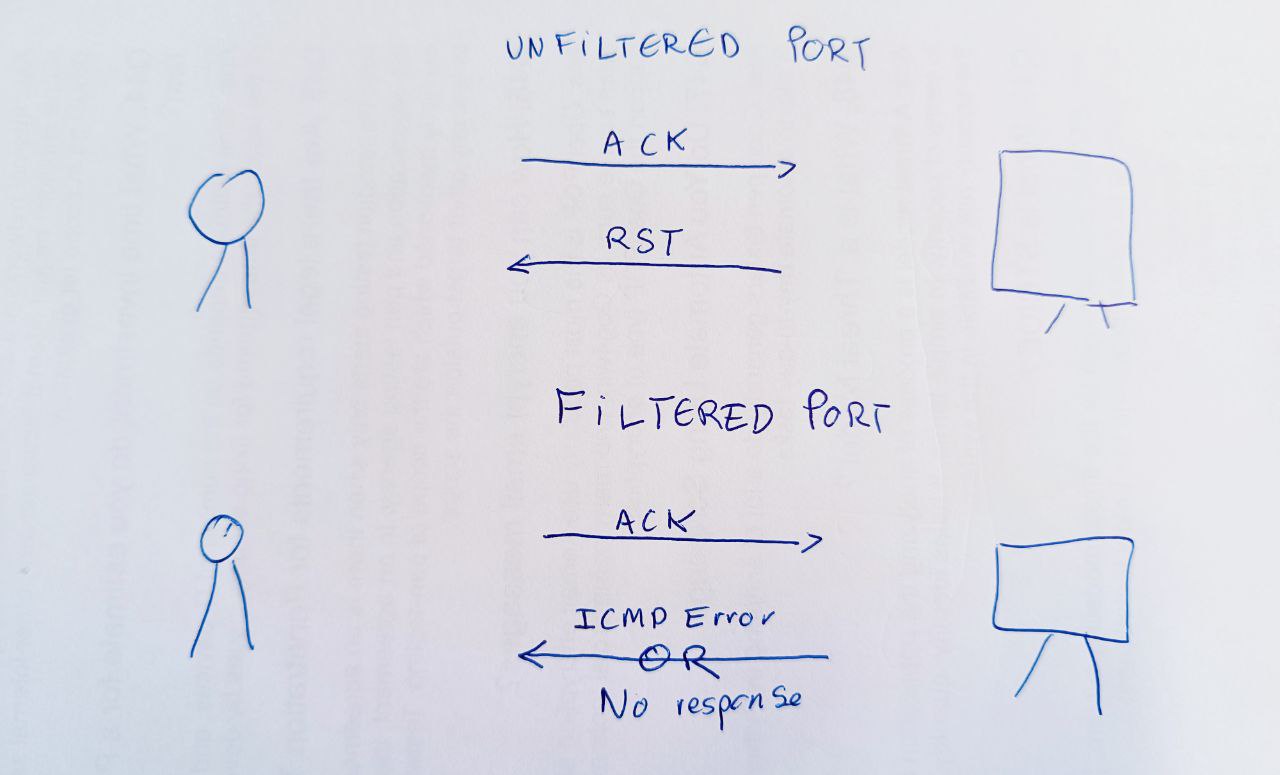 UNFiLTERED PORT
ACK
RST
FiLTERED PORT
ACK
ICMP Error
OR
No response